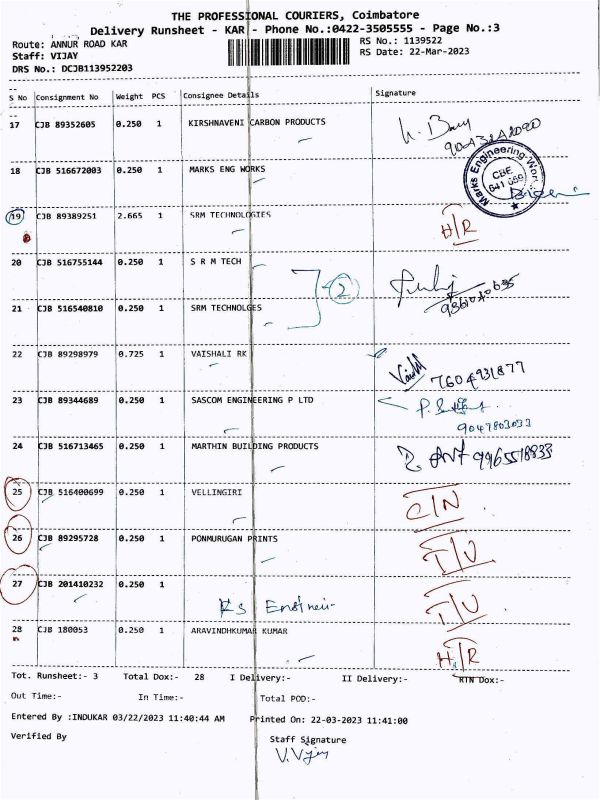 THE PROFESSIONAL COURIERS, Coimbatore
Delivery Runsheet - KAR - Phone No.:0422-3505555 - Page No.:3
Route: ANNUR ROAD KAR RS No.: 1139522
Staff: VIJAY RS Date: 22-Mar-2023
DRS No.: DCJB113952203
S No Consignment No Weight PCS Consignee Details Signature
17 CJB 89352605 0.250 1 KIRSHNAVENI CARBON PRODUCTS
18 CJB 516672003 0.250 1 MARKS ENG WORKS
Marks Engineering Works
CBE
19 CJB 89389251 2.665 1 SRM TECHNOLOGIES H/R
20 CJB 516755144 0.250 1 S R M TECH
2
21 CJB 516540810 0.250 1 SRM TECHNOLGES
22 CJB 89298979 0.725 1 VAISHALI RK
7604931877
23 CJB 89344689 0.250 1 SASCOM ENGINEERING P LTD
9047803033
24 CJB 516713465 0.250 1 MARTHIN BUILDING PRODUCTS
25 CJB 516400699 0.250 1 VELLINGIRI C/N
26 CJB 89295728 0.250 1 PONMURUGAN PRINTS T/U
27 CJB 201410232 0.250 1 T/U
28 CJB 180053 0.250 1 ARAVINDHKUMAR KUMAR H/R
Tot. Runsheet:- 3 Total Dox:- 28 I Delivery:- II Delivery:- RTN Dox:-
Out Time:- In Time:- Total POD:-
Entered By :INDUKAR 03/22/2023 11:40:44 AM Printed On: 22-03-2023 11:41:00
Verified By Staff Signature
V.Vijay